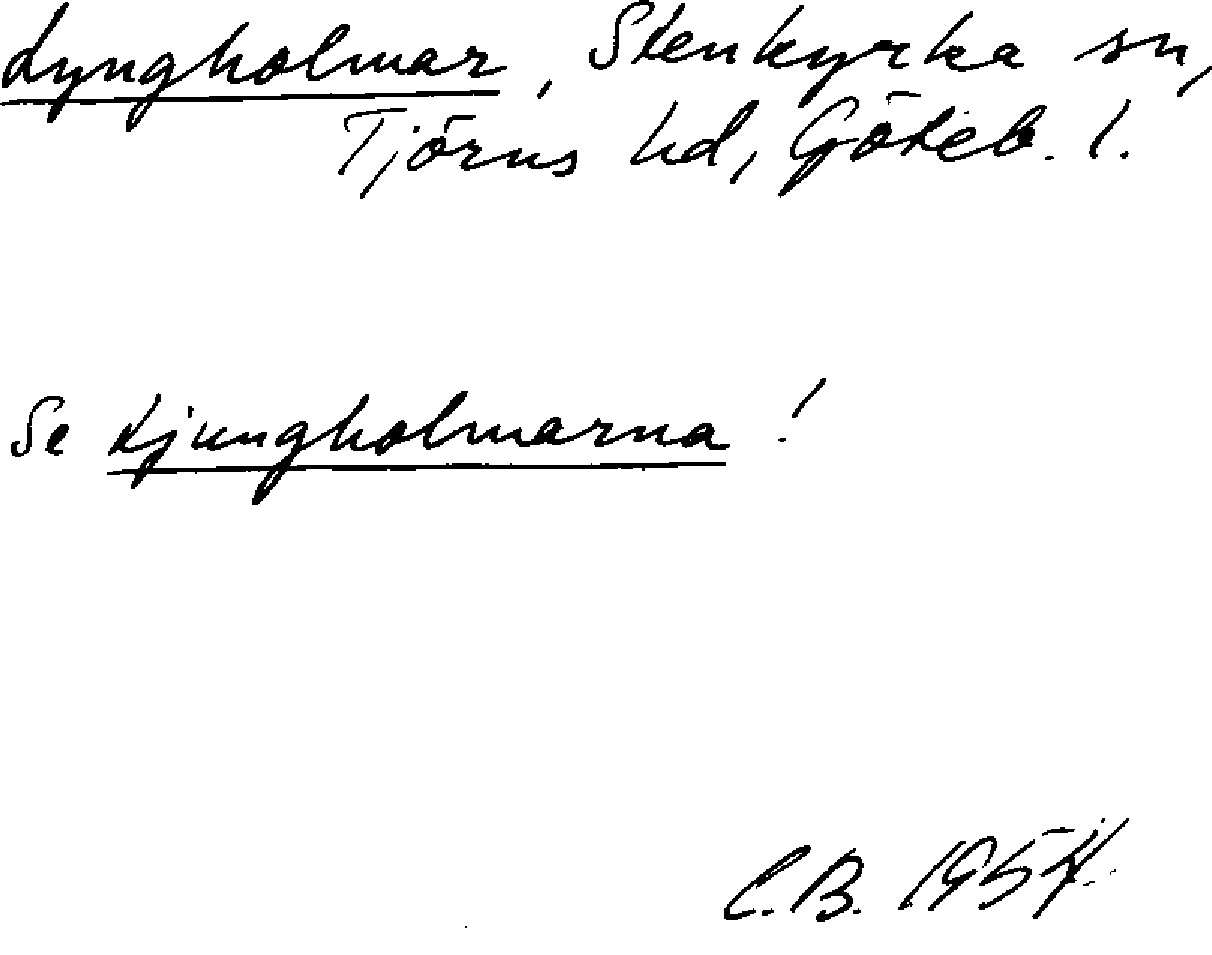 Lyngholmar, Stenkyrka sn,
Tjörns hd, Göteb. l.
Se Ljungholmarna!
C.B. 1954.